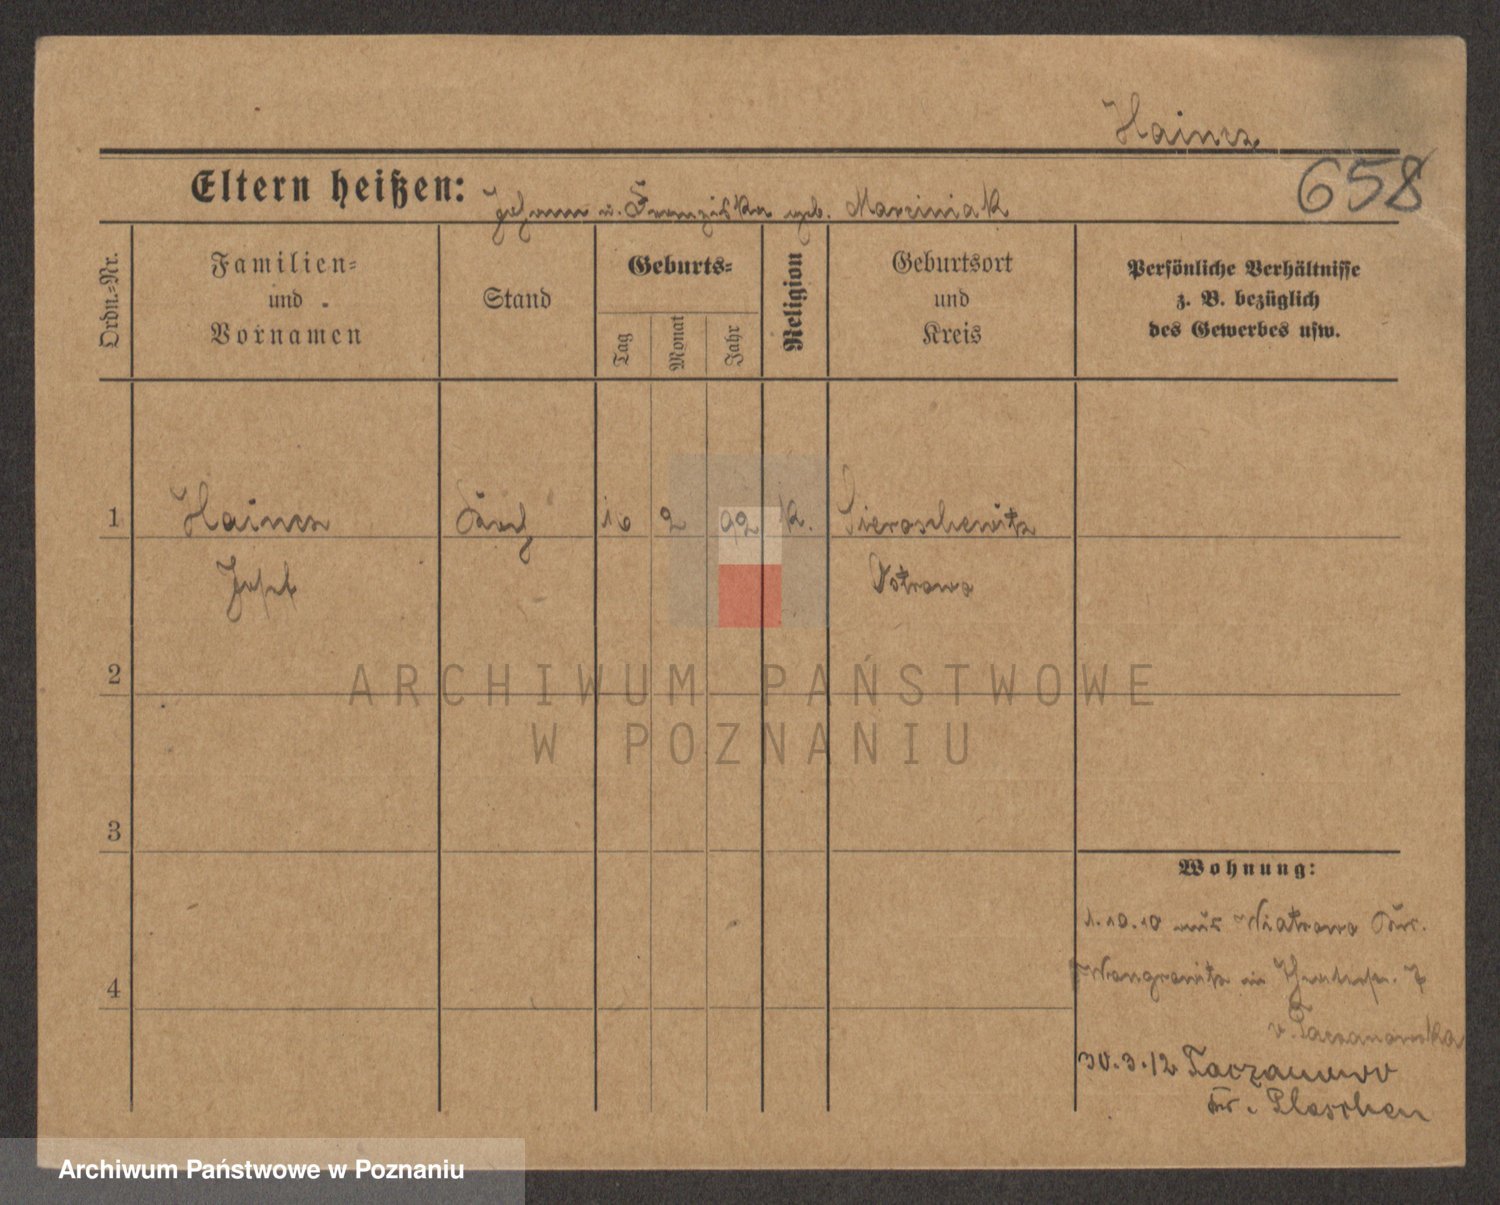 Haincz
658
Eltern heißen: Johann u. Franziska geb. Marciniak
Ordn.-Nr.
Familien-
und
Vornamen
Stand
Geburts-
Tag
Monat
Jahr
Religion
Geburtsort
und
Kreis
Persönliche Verhältnisse
z. B. bezüglich
des Gewerbes usw.
1 Haincz 16 2 92 k. Sieroschewitz
Josef Ostrowo
2
3
4
Wohnung:
1.10.10 aus Wiatrowo Kr.
Wongrowitz in 7
v. Taczanowska
30.3.12 Taczanowo
Kr. Pleschen
ARCHIWUM PAŃSTWOWE
W POZNANIU
Archiwum Państwowe w Poznaniu